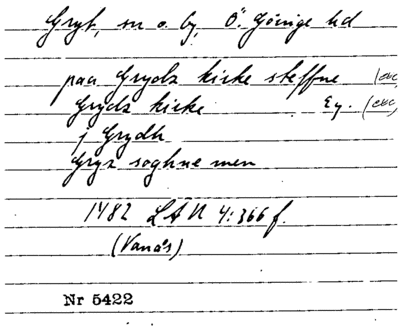 Gryt, sn o. by, Ö. Göinge hd
paa Grydz kirke steffne
Grydz kirke Ey.
j Grydh
Gryz soghne men
1482 LAN 4:366 f.
(Vanås)
Nr 5422